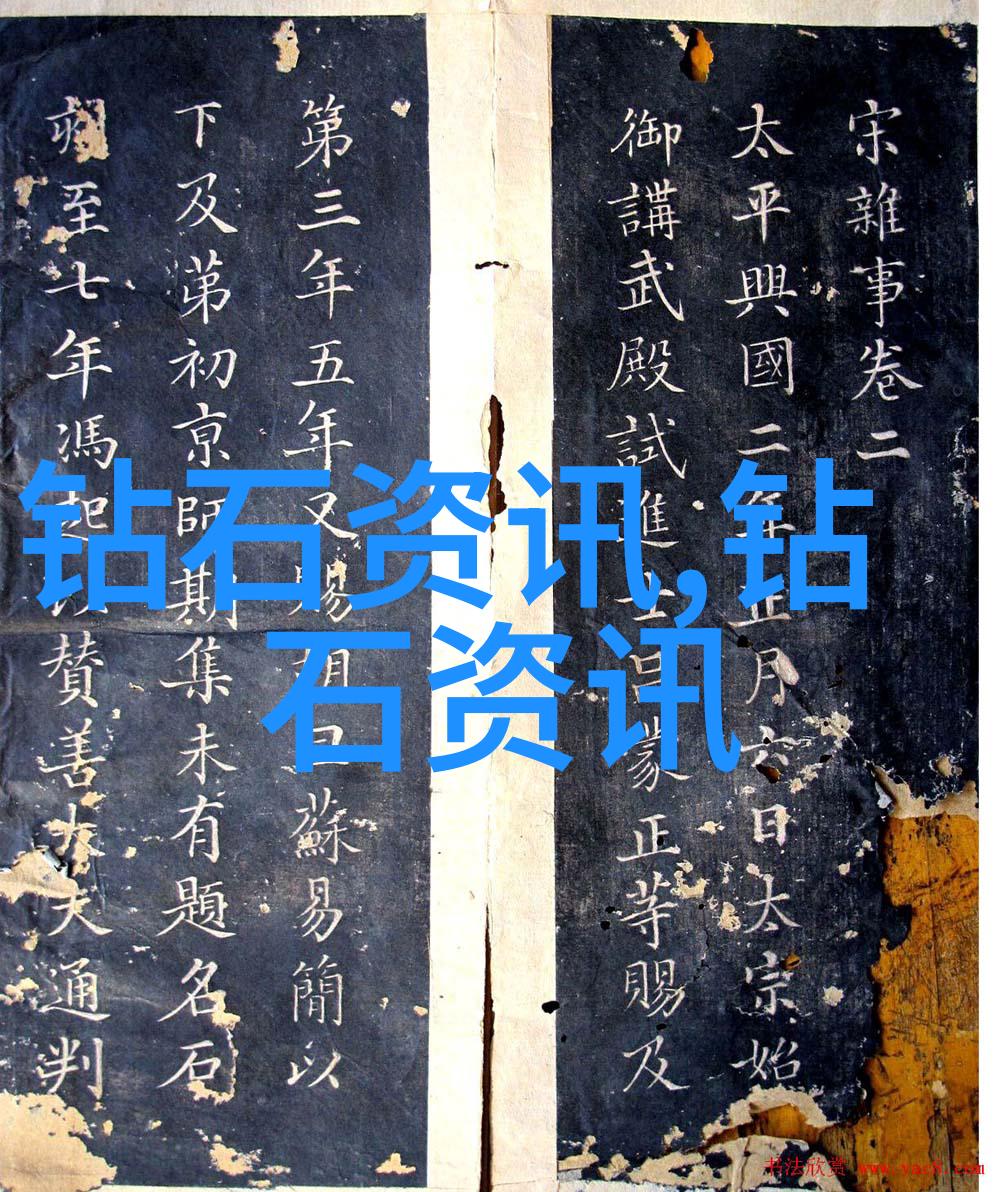 宋雜事卷二
太平興國二年正月六日太宗始
御講武殿試進士吕蒙正等賜及
第三年五年又賜胡旦蘇易簡以
下及苐初京師期集未有題名石
至七年馮起以贊善大夫通判
钻石资讯,钻
石资讯
书法欣赏 www.yac8.com